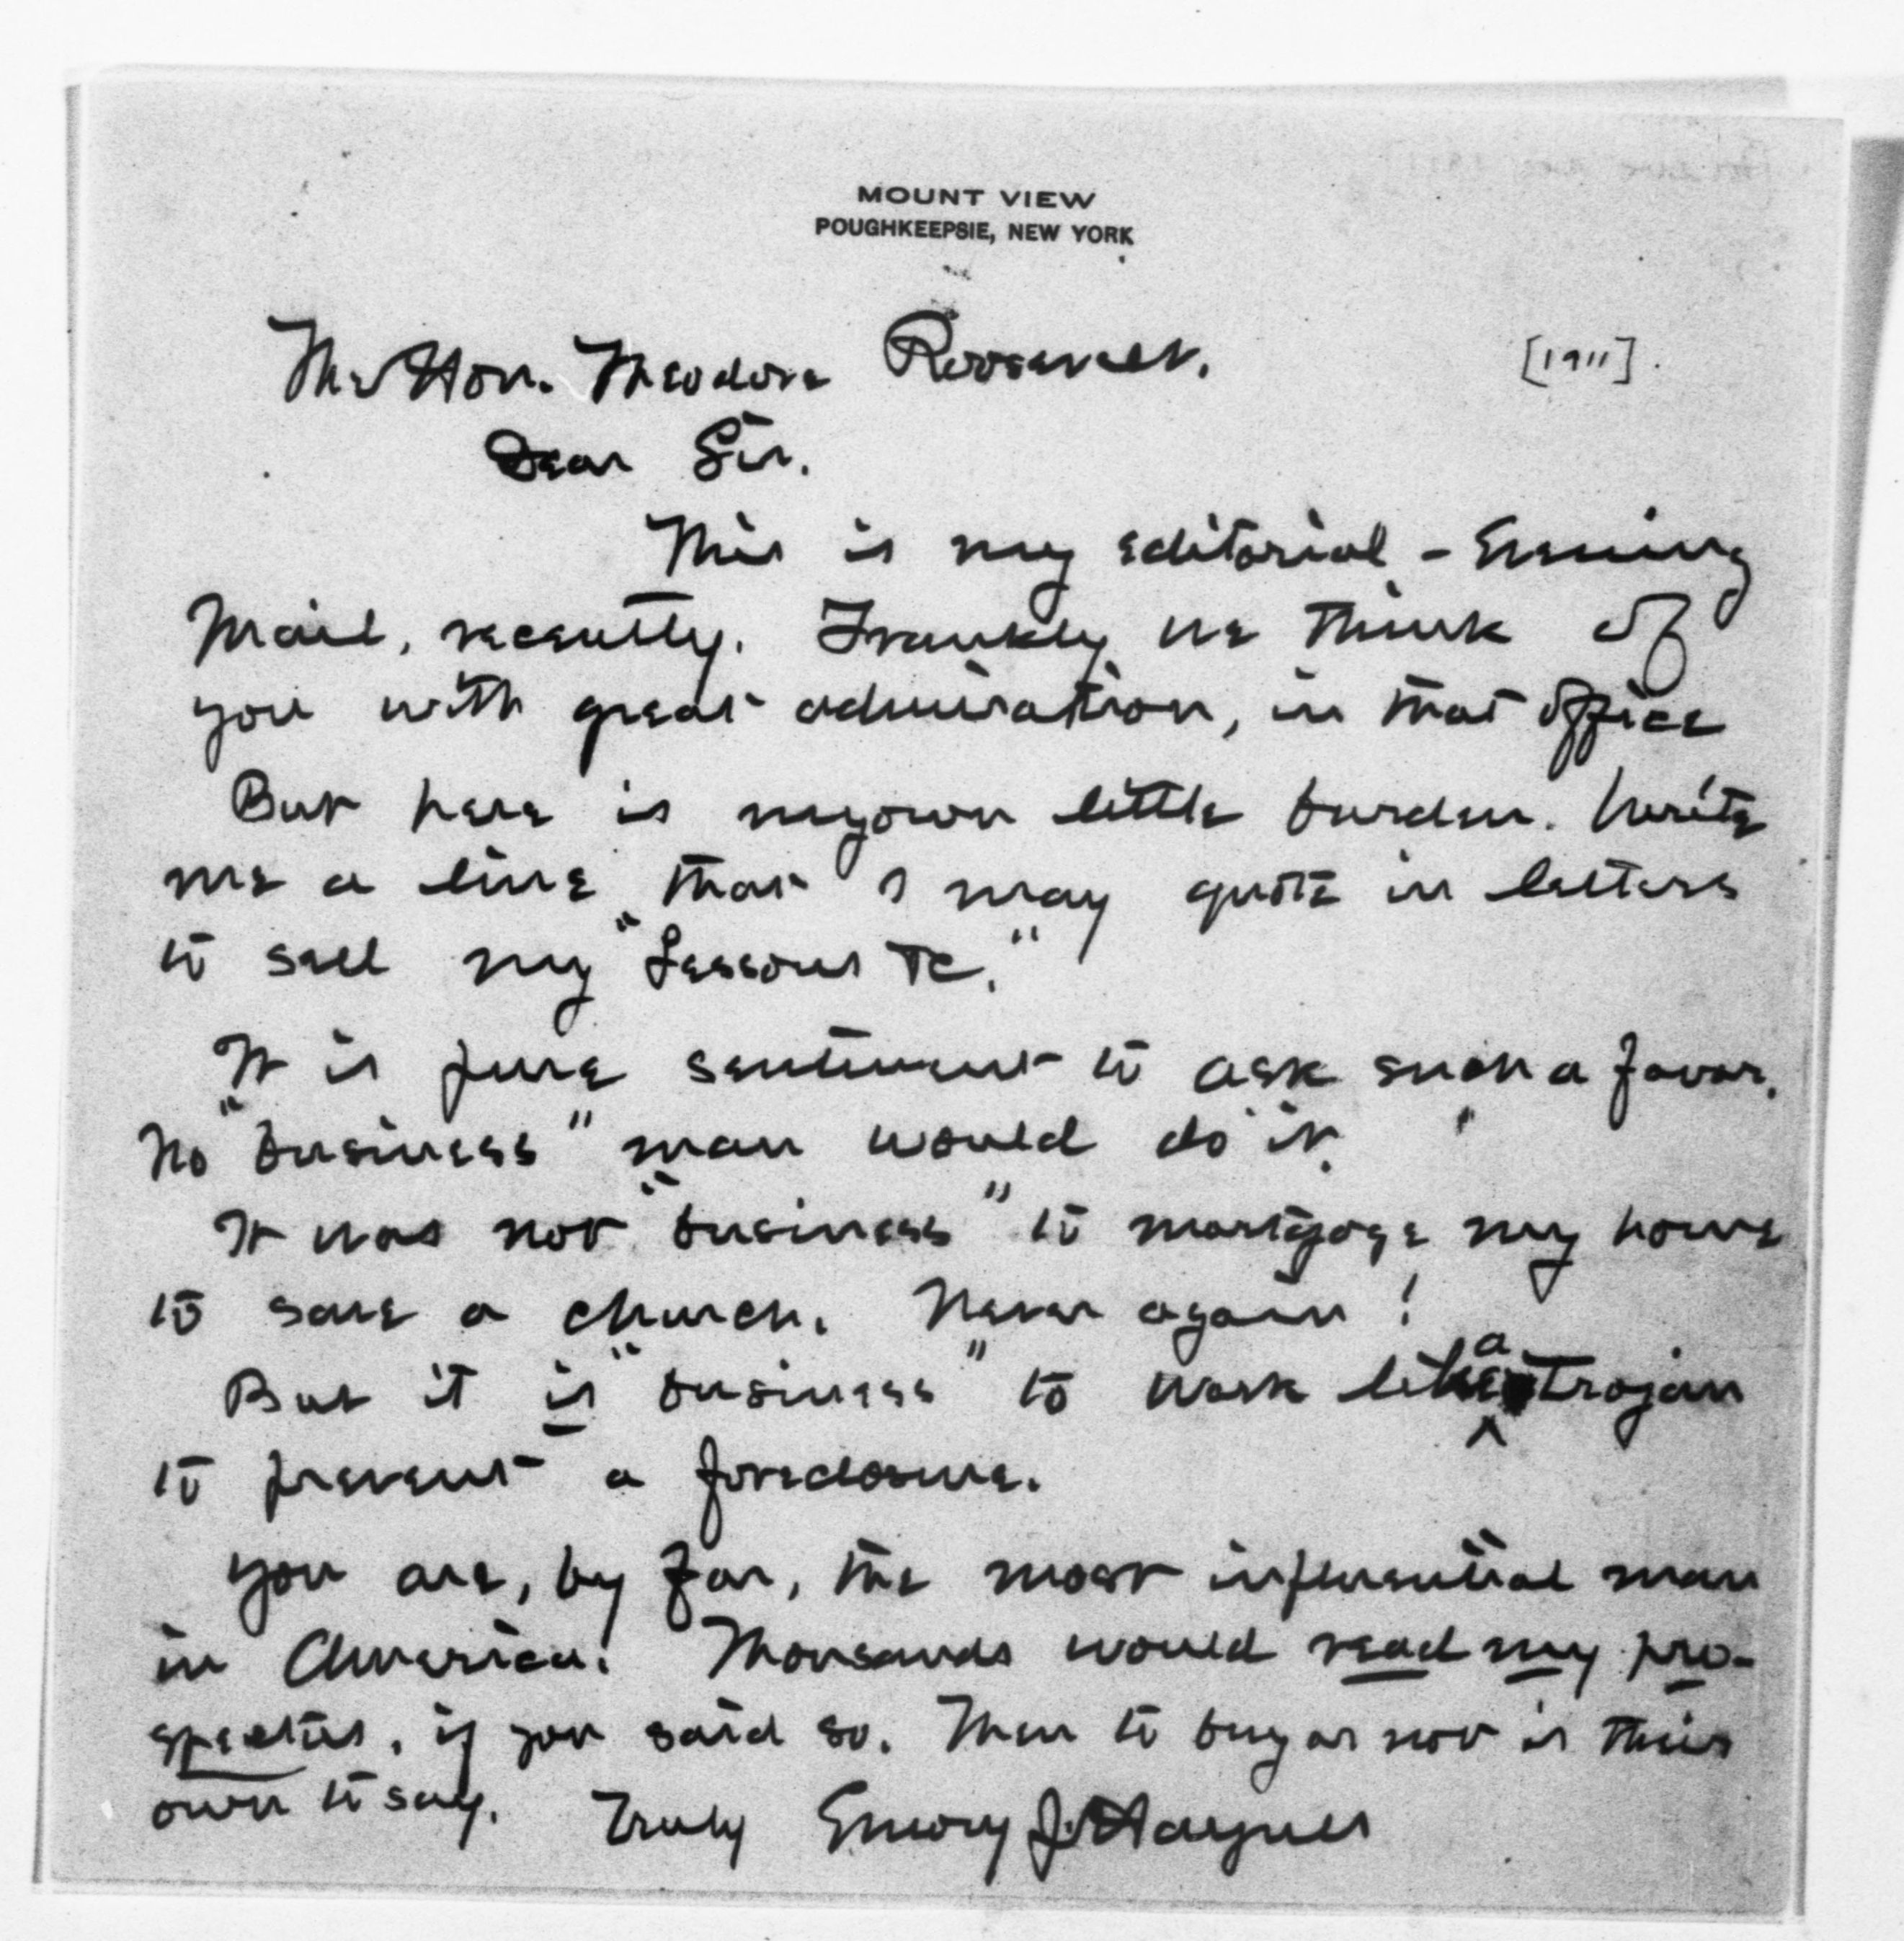 MOUNT VIEW
POUGHKEEPSIE, NEW YORK
The Hon. Theodore Roosevelt. [1911].
Dear Sir.
This is my editorial – Evening
Mail, recently. Frankly we think of
you with great admiration, in that office
But here is my own little burden. Write
me a line that I may quote in letters
to sell my "Lessons &c."
It is pure sentiment to ask such a favor.
No "business" man would do it.
It was not "business" to mortgage my home
to save a church. Never again!
But it is "business" to work like a Trojan
to prevent a foreclosure.
You are, by far, the most influential man
in America. Thousands would read my pro-
spectus, if you said so. Then to buy or not is their
own to say. Truly Emory J. Haynes